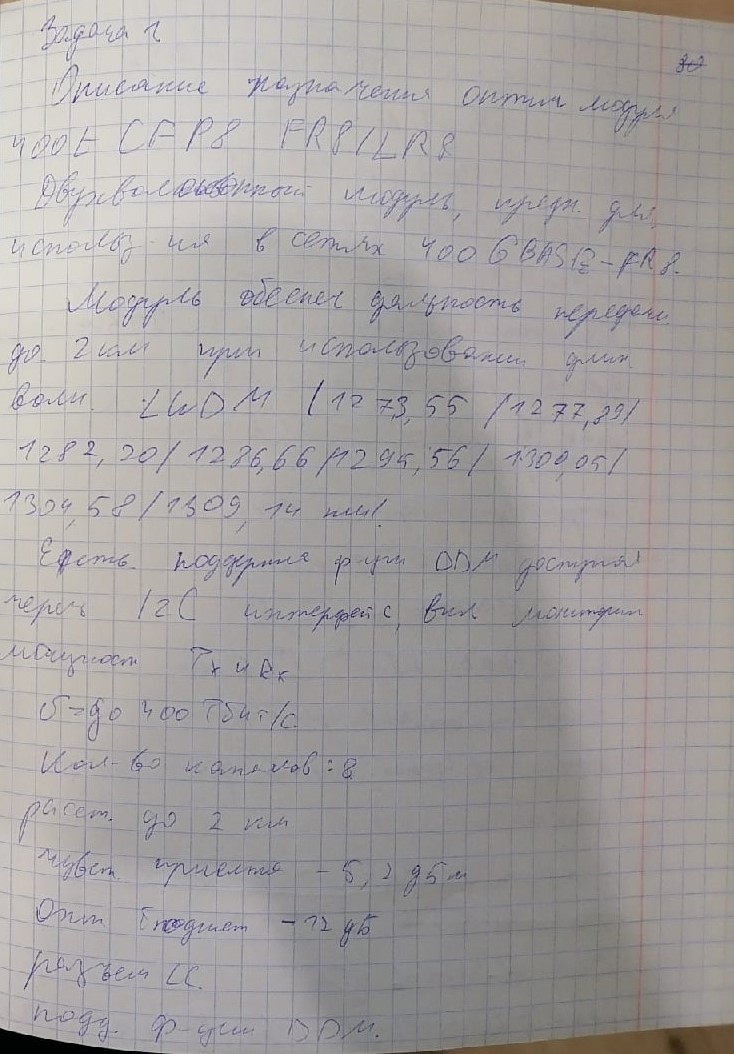 Задача 1
30
Описание назначения оптич модуля
400G CFP8 FR8/LR8
Двухволоконный модуль, предн. для
использ-ия в сетях 400GBASE-FR8.
Модуль обеспеч дальность передачи
до 2км при использовании длин
волн. LWDM /1273,55 /1277,89/
1282,20/ 1286,66 /1295,56/ 1300,05/
1304,58/1309,14 нм/
Есть поддержка ф-ции DDM доступна
через I2C интерфейс, вкл мониторинг
мощност Tx и Rx
до 400 Тбит/с
Кол-во каналов: 8
расст. до 2 км
чувст. приемника -5,2 дБм
Опт бюджет -12 дБ
разъем LC.
подд. ф-ции DDM.